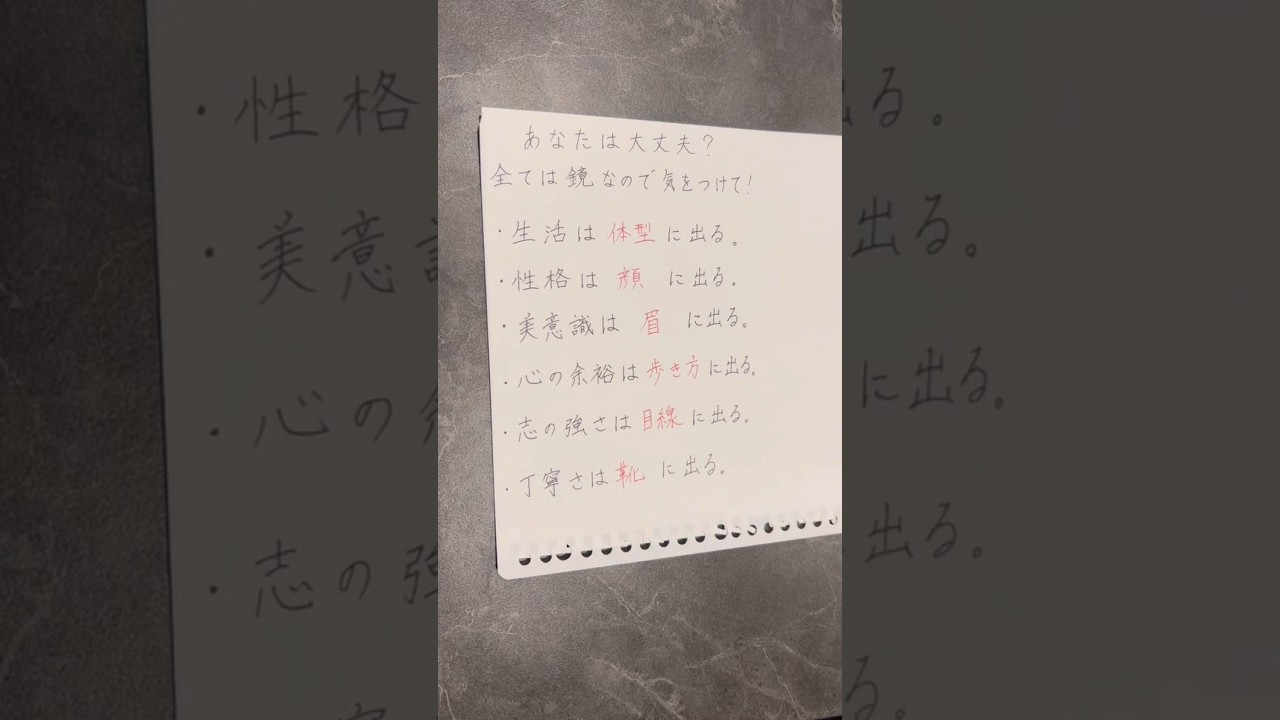 あなたは大丈夫?
全ては鏡なので気をつけて!
・生活は体型に出る。
・性格は顔に出る。
・美意識は眉に出る。
・心の余裕は歩き方に出る。
・志の強さは目線に出る。
・丁寧さは靴に出る。